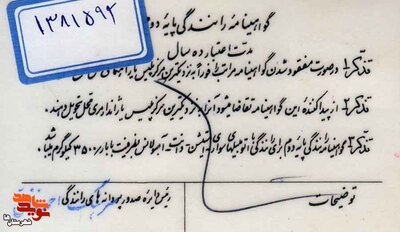 ۱۳۸۱۵۹۲
گواهینامه رانندگی پایه دوم
مدت اعتبار ده سال
تذکر ۱- در صورت مفقود شدن گواهینامه مراتب را فوراً به نزدیکترین مرکز پلیس یا راهنمائی
تذکر ۲- از پیدا کننده این گواهینامه تقاضا میشود آنرا به نزدیکترین مرکز پلیس یا ژاندارمری محل تحویل دهند.
تذکر ۳- گواهینامه رانندگی پایه دوم برای رانندگی با اتومبیلهای سواری، استیشن، وانت، آمبولانس بظرفیت با بار ۳۵۰۰ کیلوگرم میباشد
توضیحات
رئیس دایره صدور پروانه های رانندگی
نوید شاهد
شهرستان‌ها